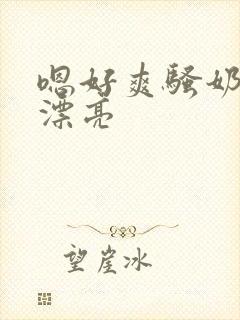 嗯好爽骚奶
漂亮
望崖冰